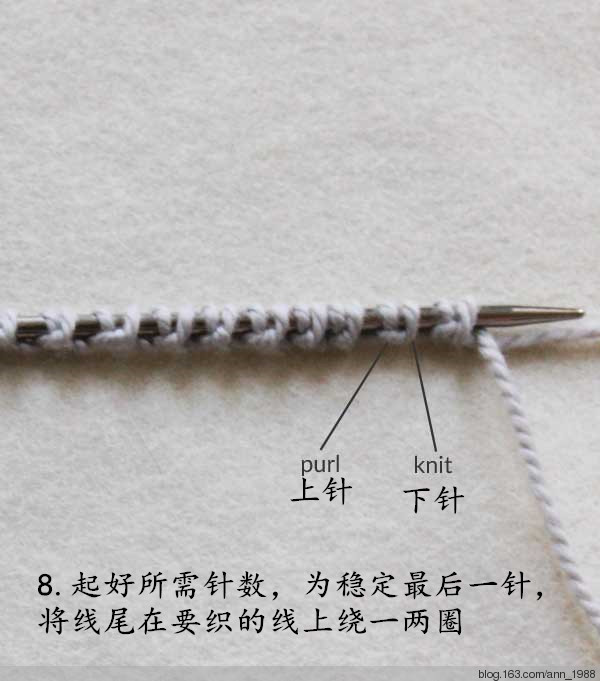 purl knit
上针 下针
8. 起好所需针数，为稳定最后一针，
将线尾在要织的线上绕一两圈
blog.163.com/ann_1988